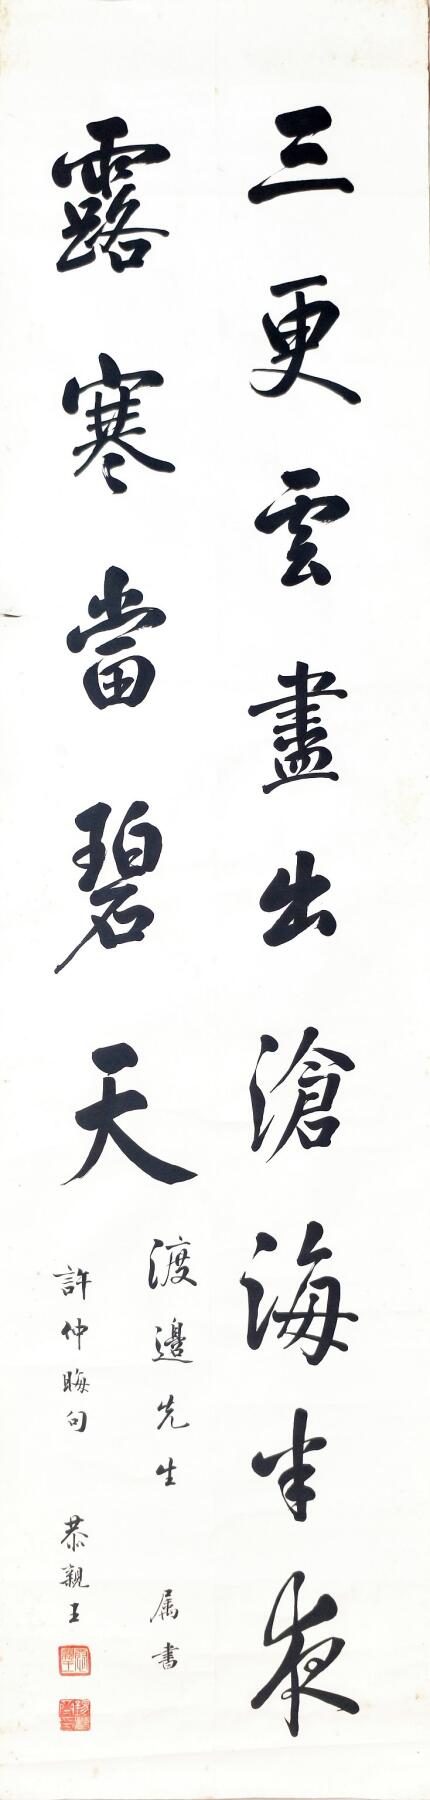 三更雲盡出滄海半夜
露寒當碧天
渡邊先生 属書
許仲晦句 恭親王